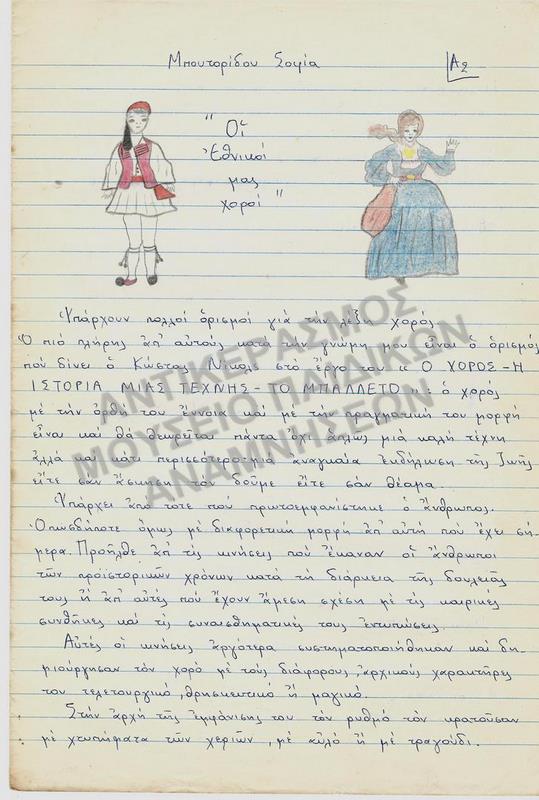 Μπουτορίδου Σοφία
Α2
"Οἵ
Ἐθνικοί
μας
χοροί"
Ὑπάρχουν πολλοί ὁρισμοί γιά τήν λέξη χορός
Ὁ πιό πλήρης ἀπ' αὐτούς κατά τήν γνώμη μου εἶναι ὁ ὁρισμός
πού δίνει ὁ Κώστας στο ἔργο του " Ο ΧΟΡΟΣ-Η
ΙΣΤΟΡΙΑ ΜΙΑΣ ΤΕΧΝΗΣ-ΤΟ ΜΠΑΛΛΕΤΟ " : ὁ χορός
μέ τήν ὀρθή του ἔννοια καί μέ τήν πραγματική του μορφή
εἶναι καί θά θεωρεῖται πάντα ὄχι ἁπλώς μιά καλή τέχνη
ἀλλά καί κάτι περισσότερο-μιά ἀναγκαία ἐκδήλωση τῆς ζωῆς
εἴτε σάν ἄσκηση τόν δοῦμε εἴτε σάν θέαμα.
Ὑπάρχει ἀπό τοτε πού πρωτοεμφανίστηκε ὁ ἄνθρωπος.
Ὁπωσδήποτε ὅμως μέ διαφορετική μορφή ἀπ' αὐτή πού ἔχει σή-
μερα. Προῆλθε ἀπ' τίς κινήσεις πού ἔκαναν οἱ ἄνθρωποι
τῶν προϊστορικῶν χρόνων κατά τή διάρκεια τῆς δουλειᾶς
τους ἤ ἀπ' αὐτές πού ἔχουν ἄμεση σχέση μέ τίς καιρικές
συνθῆκες καί τίς συναισθηματικές τους ἐντυπώσεις.
Αὐτές οἱ κινήσεις ἀργότερα συστηματοποιήθηκαν καί δη-
μιούργησαν τόν χορό μέ τούς διάφορους, ἀρχικούς χαρακτῆρες
τον τελετουργικό, θρησκευτικό ἤ μαγικό.
Στήν ἀρχή τῆς ἐμφάνισης του τόν ρυθμό τόν κρατοῦσαν
μέ χτυπήματα τῶν χεριῶν, μέ αὐλό ἤ μέ τραγούδι.
ΑΝΤΙΚΕΡΑΣΜΟΣ
ΜΟΥΣΕΙΟ ΠΑΙΔΙΚΩΝ
ΑΝΑΜΝΗΣΕΩΝ